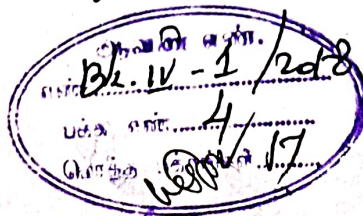 ஆவண எண்.
எண் Bk. IV - 1 / 2018
பக்க எண். 4
மொத்த 17